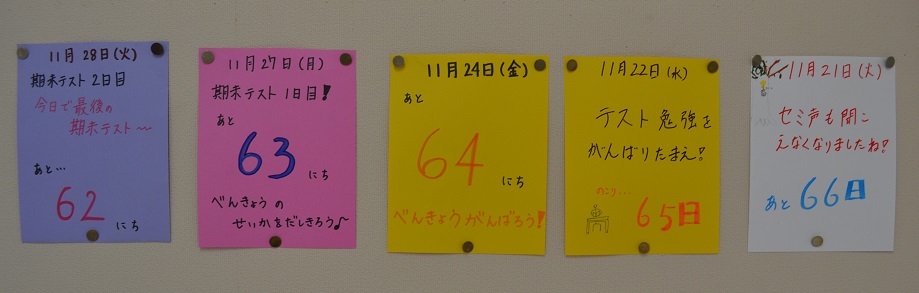 11月28日(火)
期末テスト 2日目
今日で最後の
期末テスト〜〜
あと…
62
にち
11月27日(月)
期末テスト 1日目!
あと
63
にち
べんきょうの
せいかをだしきろう♪
11月24日(金)
あと
64
にち
べんきょうがんばろう!
11月22日(水)
テスト勉強を
がんばりたまえ!
のこり…
65日
11月21日(火)
セミ声も聞こ
えなくなりましたね!
あと66日